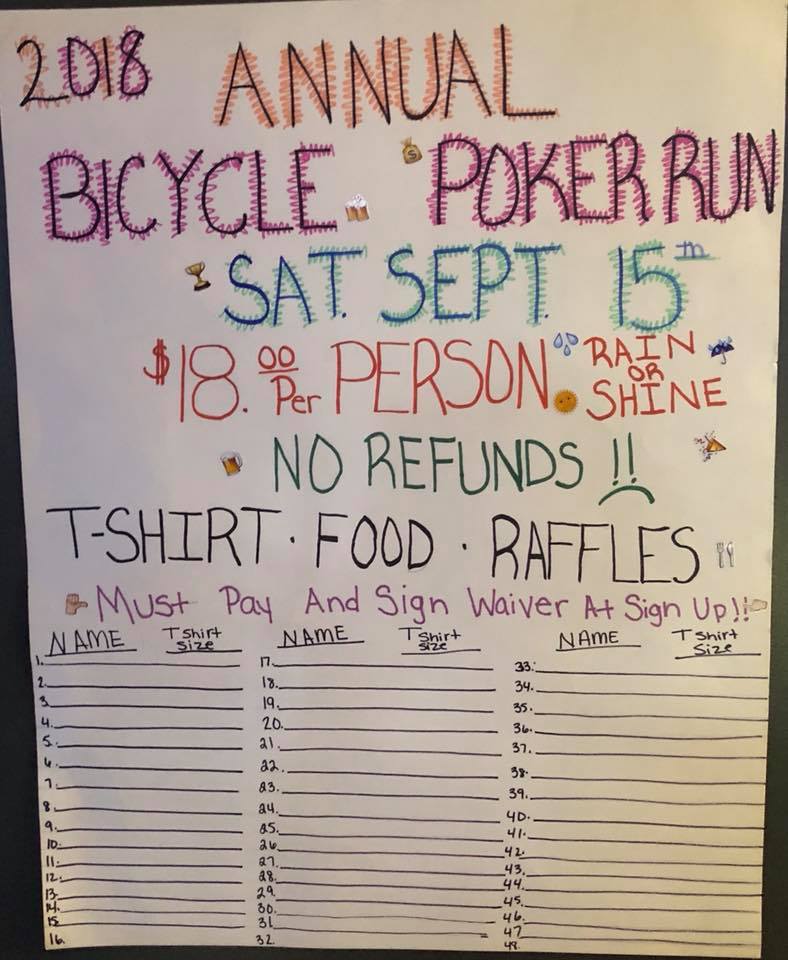 2018 ANNUAL
BICYCLE POKER RUN
SAT. SEPT. 15th
$18.00 Per PERSON. RAIN OR SHINE
NO REFUNDS !!
T-SHIRT · FOOD · RAFFLES
Must Pay And Sign Waiver At Sign Up!!
NAME T Shirt Size NAME T Shirt Size NAME T Shirt Size
1. 17. 33.
2. 18. 34.
3. 19. 35.
4. 20. 36.
5. 21. 37.
6. 22. 38.
7. 23. 39.
8. 24. 40.
9. 25. 41.
10. 26. 42.
11. 27. 43.
12. 28. 44.
13. 29. 45.
14. 30. 46.
15. 31. 47
16. 32. 48.